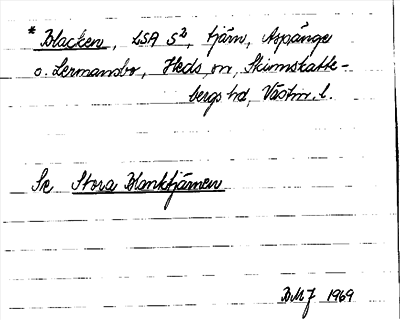 * Blacken, LSA S², tjärn, Aspänge
o. Lermansbo, Heds sn, Skinnskatte-
bergs hd, Västm. l.
Se Stora Blanktjärnen
BMJ 1969